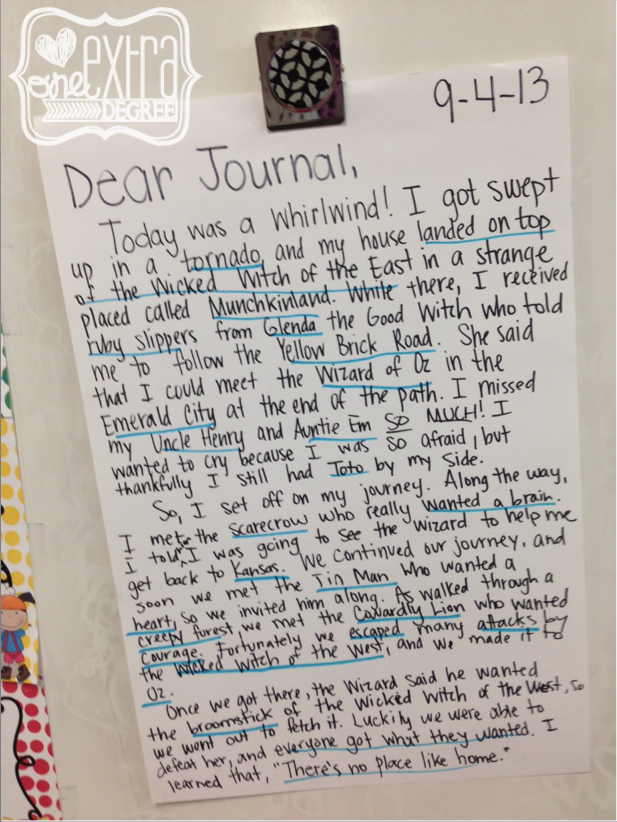 one extra
DEGREE
9-4-13
Dear Journal,
Today was a whirlwind! I got swept
up in a tornado, and my house landed on top
of the Wicked Witch of the East in a strange
placed called Munchkinland. While there, I received
ruby slippers from Glenda the Good Witch who told
me to follow the Yellow Brick Road. She said
that I could meet the Wizard of Oz in the
Emerald City at the end of the path. I missed
my Uncle Henry and Auntie Em SO MUCH! I
wanted to cry because I was so afraid, but
thankfully I still had Toto by my side.
So, I set off on my journey. Along the way,
I met the scarecrow who really wanted a brain.
I told I was going to see the wizard to help me
get back to Kansas. We continued our journey, and
soon we met the Tin Man who wanted a
heart, so we invited him along. As walked through a
creepy forest we met the Cowardly Lion who wanted
courage. Fortunately we escaped many attacks by
the Wicked Witch of the West, and we made it to
Oz.
Once we got there, the Wizard said he wanted
the broomstick of the Wicked Witch of the West, so
we went out to fetch it. Luckily we were able to
defeat her, and everyone got what they wanted. I
learned that, "There's no place like home."